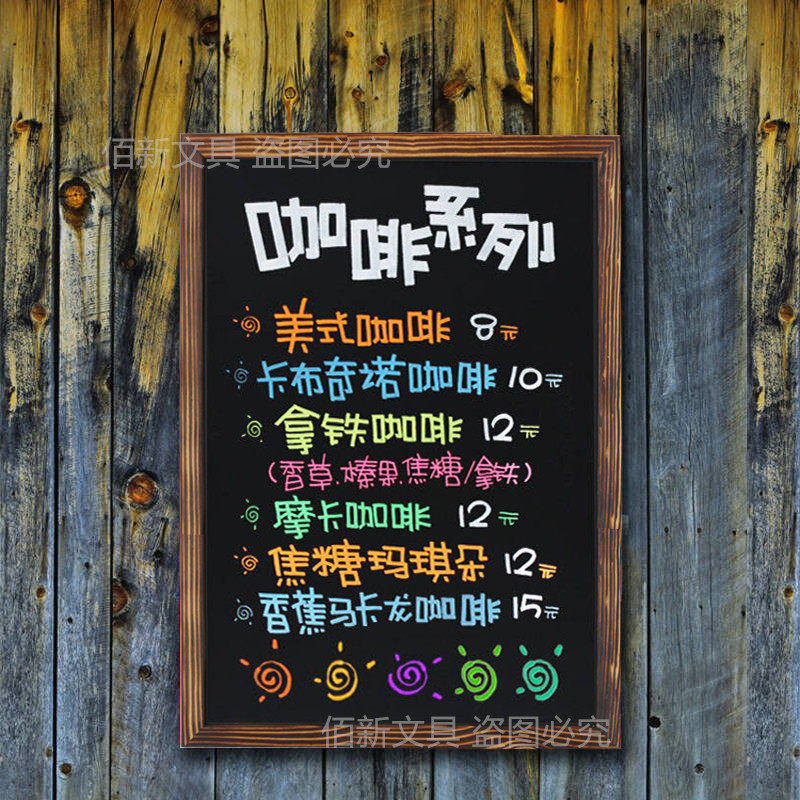 佰新文具 盗图必究
咖啡系列
美式咖啡 8元
卡布奇诺咖啡 10元
拿铁咖啡 12元
(香草.榛果.焦糖/拿铁)
摩卡咖啡 12元
焦糖玛琪朵 12元
香蕉马卡龙咖啡 15元
佰新文具 盗图必究